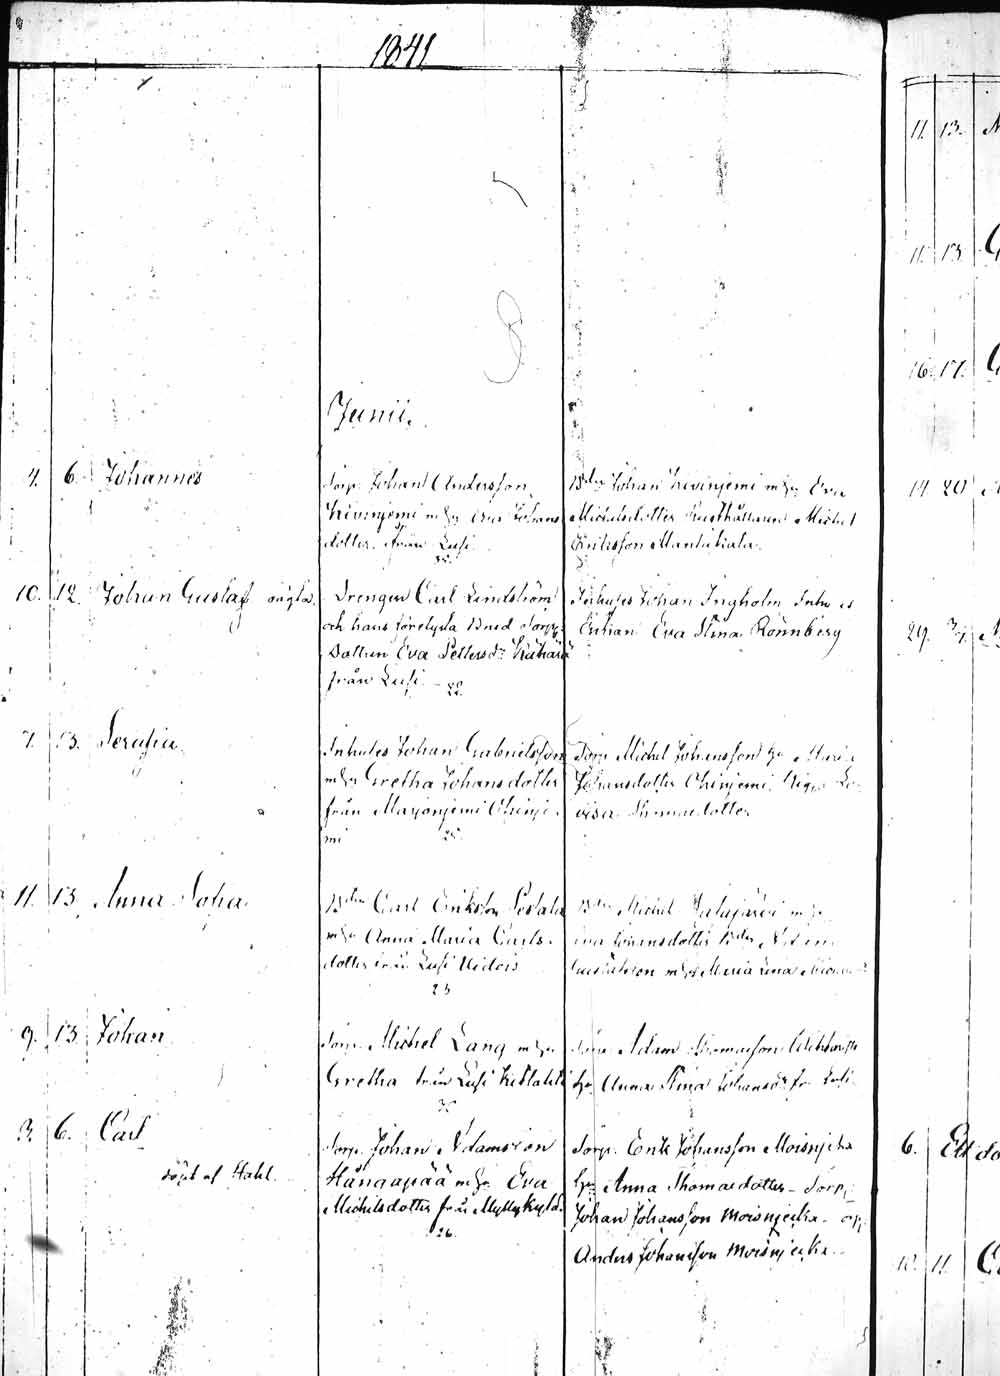 1841
Junii.
4. 6. Johannes
Torp. Johan Andersson
Kivinjemi m h Eva Johans
dotter från Lusi
35.
Bdn Johan Kivinjemi m h Eva
Michelsdotter Rusthållaren Michel
Eriksson Mantukala.
10. 12. Johan Gustaf oägta.
Drengen Carl Lindström
och hans förelysta Brud Torp
dottren Eva Pettersdr Kähärä
från Lusi
22.
Inhyses Johan Ingholm Inhs
Enkan Eva Stina Rönnberg
7. 13. Serafia
Inhyses Johan Gabrielsson
m h Gretha Johansdotter
från Marjonjemi
mi
25.
Torp Michel Johansson h Maria
Johansdotter Pig. Lo
visa Thomasdotter
11. 13 Anna Sofia
Bdn Carl Eriksson Sestala
m h Anna Maria Carls
dotter från Lusi
23
Bdn Michel Jalajärvi m h
Eva Johansdotter Bdn
Gustafsson m h Maria Lena
9. 13 Johan
Torp. Michel Lang m h
Gretha från Lusi
35
Torp Adam Thomasson
h Anna Stina Johansdr fr Lusi
3. 6. Carl
döpt af Stahl
Torp. Johan Adamsson
Hångaapää m h Eva
Michelsdotter från Myllykylä.
26.
Torp. Erik Johansson Moisnjecka
h Anna Thomasdotter - Torp.
Johan Johansson Moisnjecka -
Anders Johansson Moisnjecka
11. 13.
11. 13. G
16. 17. G
14 20
29. 3/7
6. Ett do
10. 11.